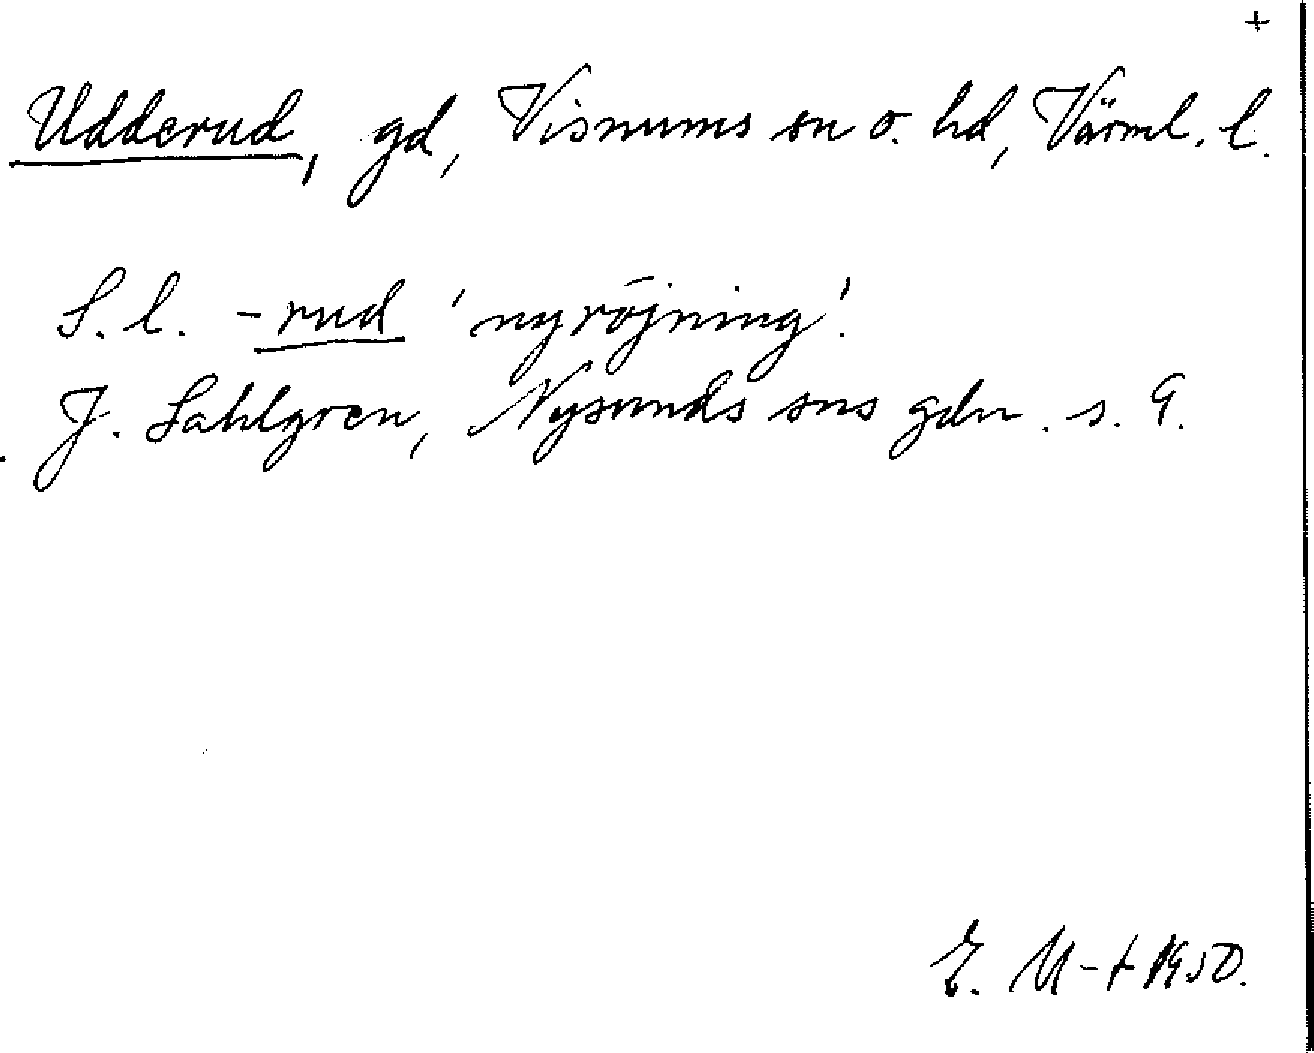 +
Udderud, gd, Visnums sn o. hd, Värml. l.
S. l. -rud 'nyröjning'.
J. Sahlgren, Nysunds sns gdn. s. 9.
E. M-t 1950.